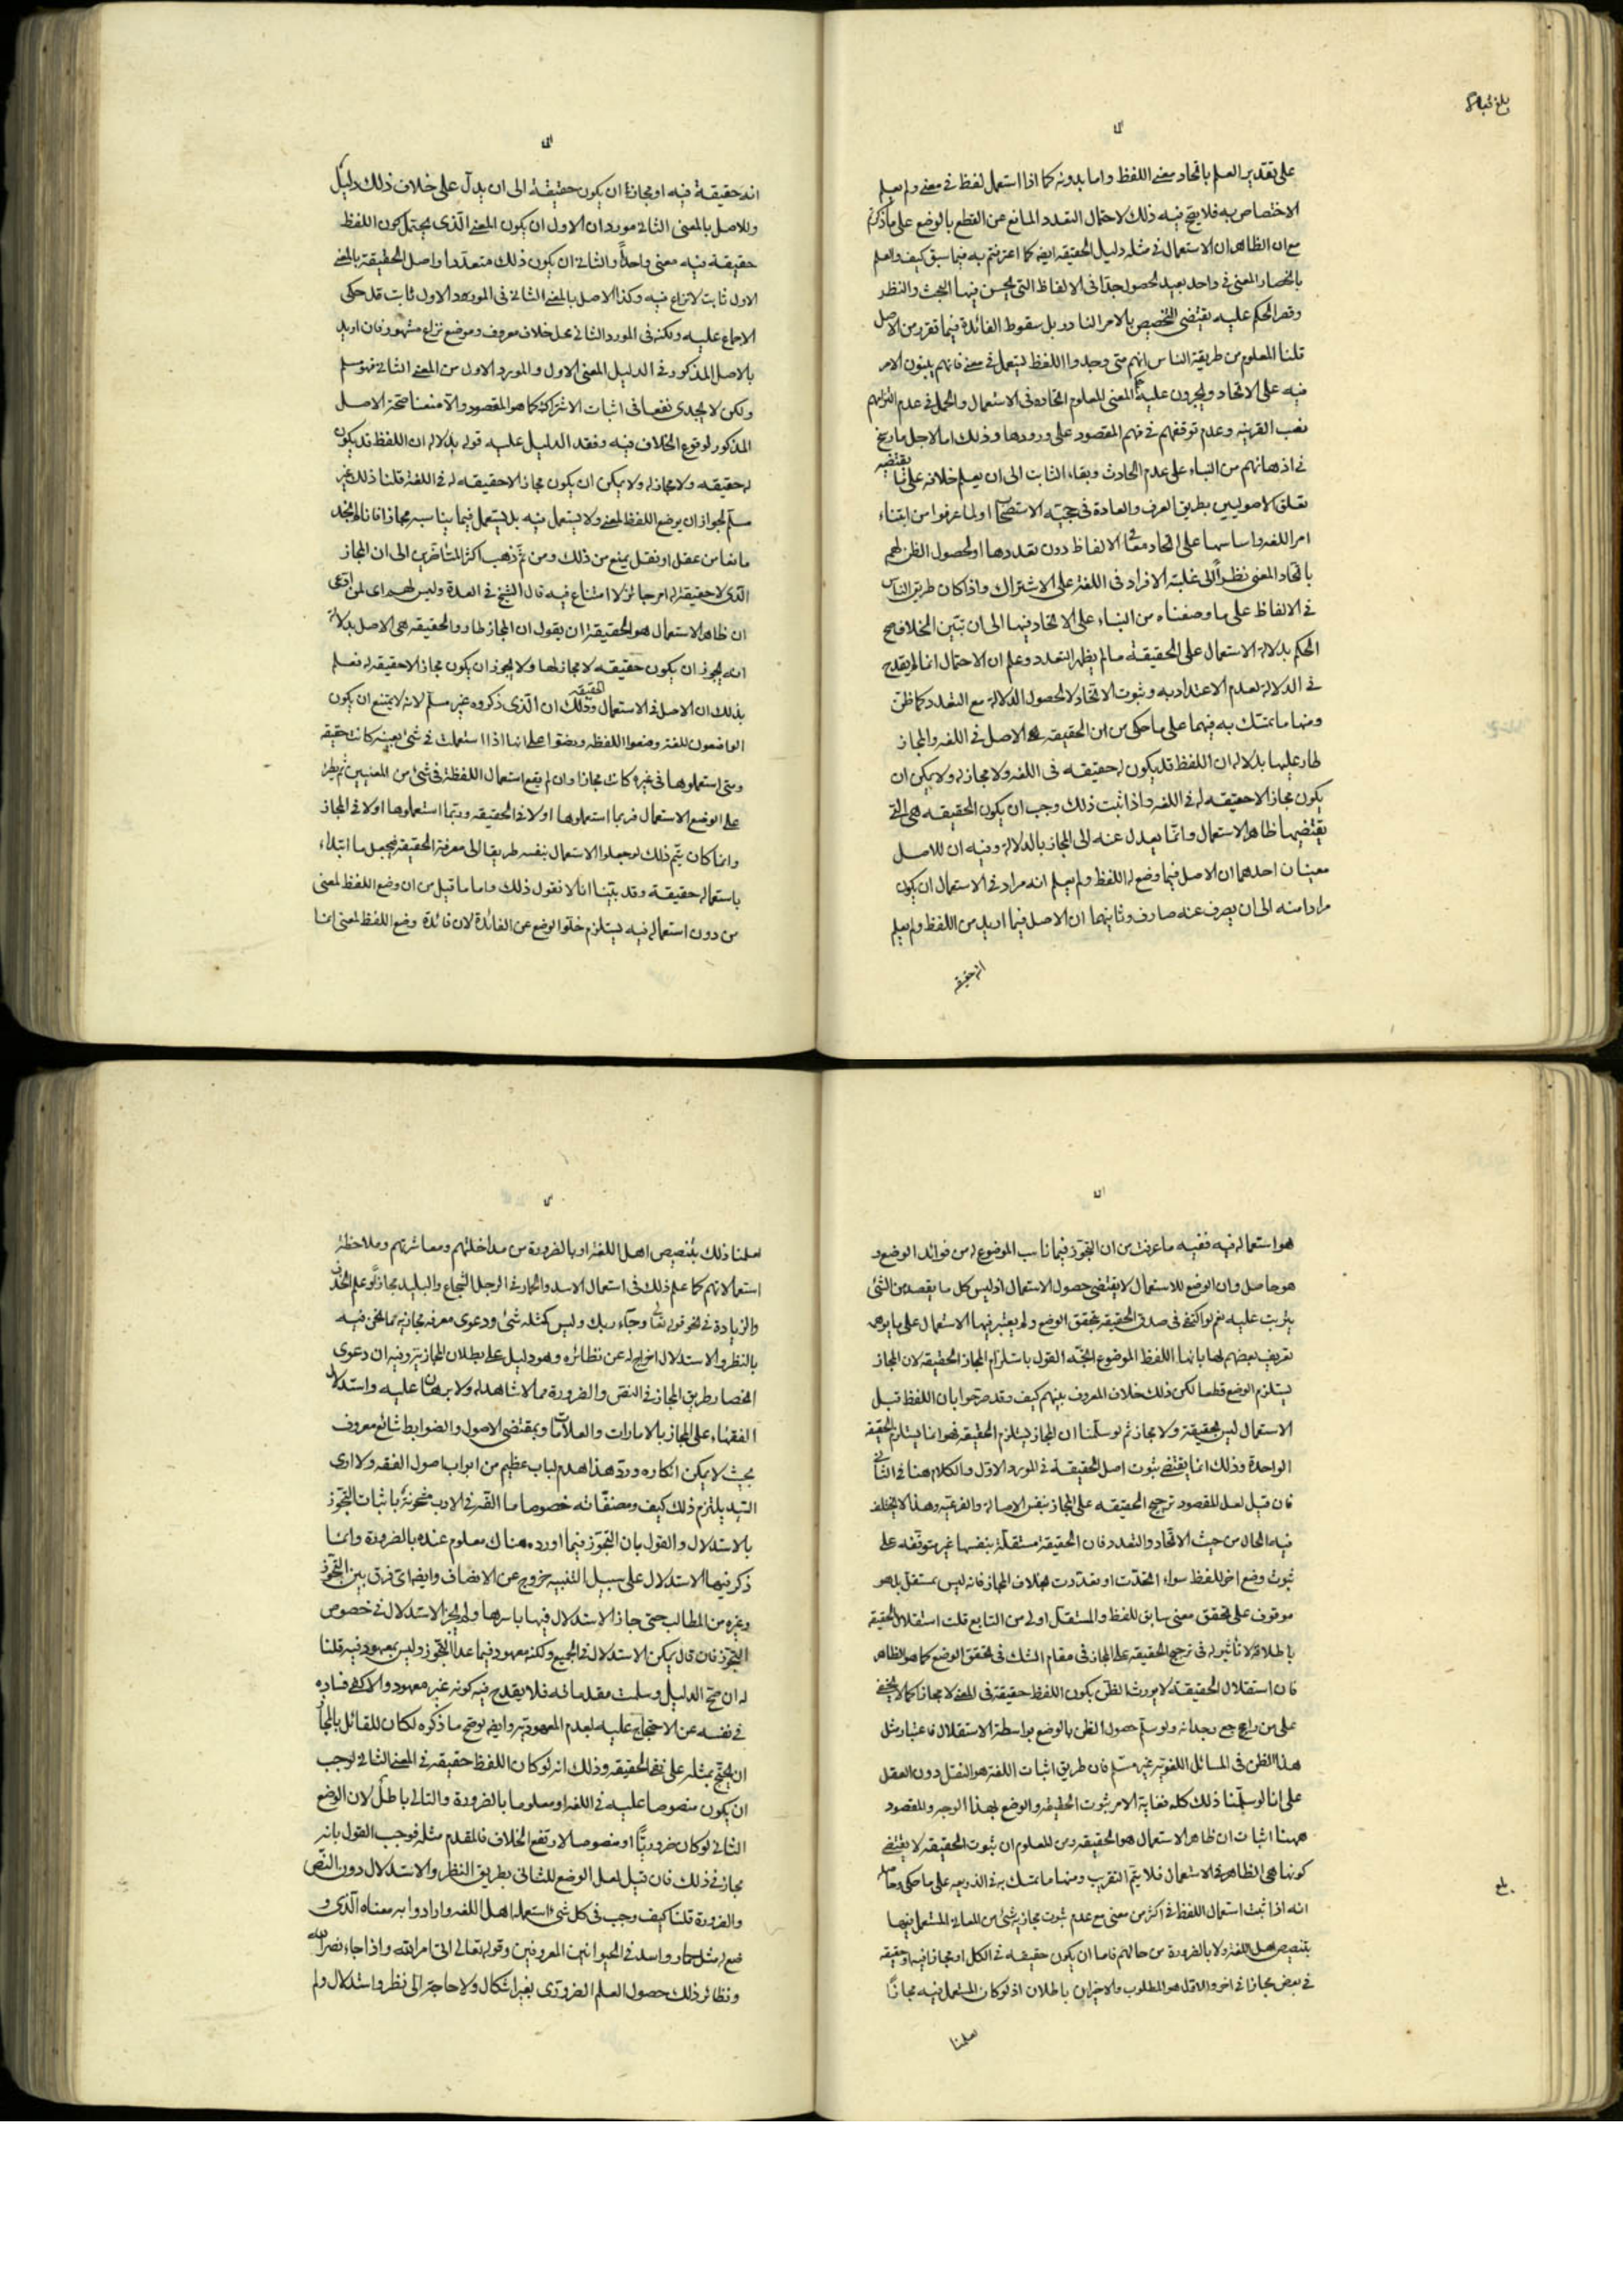 بلغ قبالا
على تقدير العلم باتحاد معنى اللفظ واما بدونه كما اذا استعمل لفظ في معنى ولم يعلم
الاختصاص به فلا يصح فيه ذلك لاحتمال التعدد المانع عن القطع بالوضع على ما ذكرتم
مع ان الظاهر ان الاستعمال في مثله دليل الحقيقة ايضا كما اعترفتم به فيما سبق كيف والعلم
بانحصار المعنى في واحد بعيد الحصول جدا في الالفاظ التي يحسن فيها البحث والنظر
وقصر الحكم عليه يقتضى التخصيص بالامر النادر بل سقوط الفائدة فيما تقرر من الاصل
قلنا المعلوم من طريقة الناس انهم متى وجدوا اللفظ يستعمل في معنى فانهم يبنون الامر
فيه على الاتحاد ويجرون عليه حكم المعنى المعلوم اتحاده في الاستعمال والحمل في عدم التزامهم
نصب القرينه وعدم توقفهم في فهم المقصود على ورودها وذلك اما لاجل ما رسخ
في اذهانهم من البناء على عدم الحادث وبقاء الثابت الى ان يعلم خلافه على ما يقتضيه
تعلق الاصوليين بطريق العرف والعادة في حجيه الاستصحاب او لما عرفوا من ابتناء
امر اللغه واساسها على اتحاد معانى الالفاظ دون تعددها او لحصول الظن لهم
باتحاد المعنى نظرا الى غلبة الافراد في اللغة على الاشتراك واذا كان طريق الناس
في الالفاظ على ما وصفناه من البناء على الاتحاد فيها الى ان تبين الخلاف صح
الحكم بدلالة الاستعمال على الحقيقة ما لم يظهر التعدد وعلم ان الاحتمال انما لم يقدح
في الدلالة لعدم الاعتداد به وثبوت الاتحاد لا لحصول الدلالة مع التعدد كما ظن
ومنها ما تمسك به فيهما على ما حكى من ان الحقيقه هى الاصل في اللغه والمجاز
طار عليها بدلالة ان اللفظ قد يكون له حقيقه في اللغه ولا مجاز له ولا يمكن ان
يكون مجاز لا حقيقه له في اللغه واذا ثبت ذلك وجب ان يكون الحقيقه هى التي
يقتضيها ظاهر الاستعمال وانما يعدل عنه الى المجاز بالدلالة وفيه ان للاصل
معنيان احدهما ان الاصل فيما وضع له اللفظ ولم يعلم انه مراد في الاستعمال ان يكون
مرادا منه الى ان يصرف عنه صارف وثانيهما ان الاصل فيما اريد من اللفظ ولم يعلم
انه حقيقه
انه حقيقة فيه او مجازا ان يكون حقيقة الى ان يدل على خلاف ذلك دليل
وللاصل بالمعنى الثاني موردان الاول ان يكون المعنى الذى يحتمل كون اللفظ
حقيقة فيه معنى واحدا والثاني ان يكون ذلك متعددا واصل الحقيقة بالمعنى
الاول ثابت لا نزاع فيه وكذا الاصل بالمعنى الثاني في المورد الاول ثابت قد حكى
الاجماع عليه ولكنه في المورد الثاني محل خلاف معروف وموضع نزاع مشهور فان اريد
بالاصل المذكور في الدليل المعنى الاول والمورد الاول من المعنى الثاني فهو مسلم
ولكن لا يجدى نفعا في اثبات الاشتراك كما هو المقصود والا منعنا صحة الاصل
المذكور لوقوع الخلاف فيه وفقد الدليل عليه قوله بدلالة ان اللفظ قد يكون
له حقيقه ولا مجاز له ولا يمكن ان يكون مجاز لا حقيقه له في اللغة قلنا ذلك غير
مسلم لجواز ان يوضع اللفظ لمعنى ولا يستعمل فيه بل يستعمل فيما يناسبه مجازا فانا لم نجد
مانعا من عقل او نقل يمنع من ذلك ومن ثم ذهب اكثر المتاخرين الى ان المجاز
الذى لا حقيقة له امر جائز لا امتناع فيه قال الشيخ في العدة وليس لهم اى لمن ادعى
ان ظاهر الاستعمال هو الحقيقة ان يقول ان المجاز طار والحقيقه هى الاصل بدلالة
انه يجوز ان يكون حقيقه لا مجاز لها ولا يجوز ان يكون مجاز لا حقيقه له فعلم
بذلك ان الاصل في الاستعمال الحقيقه وذلك ان الذى ذكروه غير مسلم لانه لا يمتنع ان يكون
الواضعون للغة وضعوا اللفظه ونصوا على انها اذا استعملت في شئ بعينه كانت حقيقه
ومتى استعملوها في غيره كانت مجازا وان لم يقع استعمال اللفظة في شئ من المعنيين ثم يطرء
على الوضع الاستعمال فربما استعملوها اولا في الحقيقه وربما استعملوها اولا في المجاز
وانما كان يتم ذلك لو جعلوا الاستعمال بنفسه طريقا الى معرفة الحقيقه فيجعل ما ابتداء
باستعماله حقيقة وقد بينا انا لا نقول ذلك واما ما قيل من ان وضع اللفظ لمعنى
من دون استعماله فيه يستلزم خلو الوضع عن الفائدة لان فائدة وضع اللفظ لمعنى انما
هو استعماله فيه ففيه ما عرفت من ان التجوز فيما ناسب الموضوع له من فوائد الوضع و
هو حاصل وان الوضع للاستعمال لا يقتضى حصول الاستعمال اذ ليس كل ما يقصد من الشئ
يترتب عليه نعم لو اكتفى في صدق الحقيقه بتحقق الوضع ولم يعتبر فيها الاستعمال على ما يوهمه
تعريف بعضهم لها بانها اللفظ الموضوع اتجه القول باستلزام المجاز الحقيقه لان المجاز
يستلزم الوضع قطعا لكن ذلك خلاف المعروف بينهم كيف وقد صرحوا بان اللفظ قبل
الاستعمال ليس بحقيقة ولا مجاز ثم لو سلمنا ان المجاز يستلزم الحقيقه فهو انما يستلزم الحقيقه
الواحدة وذلك انما يقتضى ثبوت اصل الحقيقة في المورد الاول والكلام هنا في الثاني
فان قيل لعل المقصود ترجيح الحقيقه على المجاز بنفس الاصالة والفرعيه وهذا لا يختلف
فيه الحال من حيث الاتحاد والتعدد فان الحقيقة مستقلة بنفسها غير متوقفه على
ثبوت وضع اخر للفظ سواء اتحدت او تعددت بخلاف المجاز فانه ليس بمستقل بل هو
موقوف على تحقق معنى سابق للفظ والمستقل اولى من التابع قلت استقلال الحقيقه
باطلاقه لا تاثير له في ترجيح الحقيقه على المجاز في مقام الشك في تحقق الوضع كما هو الظاهر
فان استقلال الحقيقة لا يورث الظن بكون اللفظ حقيقة في المعنى لا مجازا كما لا يخفى
على من راجع وجدانه ولو سلم حصول الظن بالوضع بواسطة الاستقلال فاعتبار مثل
هذا الظن في المسائل اللغوية غير مسلم فان طريق اثبات اللغة هو النقل دون العقل
على انا لو سلمنا ذلك كله فغاية الامر ثبوت الحقيقه والوضع بهذا الوجه والمقصود
ههنا اثبات ان ظاهر الاستعمال هو الحقيقه ومن المعلوم ان ثبوت الحقيقه لا يقتضى
كونها هى الظاهر في الاستعمال فلا يتم التقريب ومنها ما تمسك به في الذريعه على ما حكى وحاصله
بلغ
انه اذا ثبت استعمال اللفظ في اكثر من معنى مع عدم ثبوت مجازية شئ من المعاني المستعمل فيها
بتنصيص اهل اللغة ولا بالضرورة من حالهم فاما ان يكون حقيقه في الكل او مجازا فيه او حقيقه
في بعض مجازا في اخر والاول هو المطلوب والاخيران باطلان اذ لو كان المستعمل فيه مجازا
لعلمنا
لعلمنا ذلك بتنصيص اهل اللغة او بالضرورة من مداخلتهم ومعاشرتهم وملاحظة
استعمالاتهم كما علم ذلك في استعمال الاسد والحمار في الرجل الشجاع والبليد مجازا وعلم الحذف
والزيادة في نحو قوله تعالى وجاء ربك وليس كمثله شئ ودعوى معرفه مجازية ما نحن فيه
بالنظر والاستدلال اخراج له عن نظائره وهو دليل على بطلان المجازية وفيه ان دعوى
انحصار طريق المجاز في النقص والضرورة مما لا شاهد له ولا برهان عليه واستدلال
الفقهاء على المجاز بالامارات والعلامات وبمقتضى الاصول والضوابط شائع معروف
بحيث لا يمكن انكاره ورد هذا هدم لباب عظيم من ابواب اصول الفقه ولا ارى
السيد يلتزم ذلك كيف ومصنفاته خصوصا ما الفه في الادب مشحونة باثبات التجوز
بالاستدلال والقول بان التجوز فيما اورده هناك معلوم عنده بالضرورة وانما
ذكر فيها الاستدلال على سبيل التنبيه خروج عن الانصاف وايضا اى فرق بين التجوز
وغيره من المطالب حتى جاز الاستدلال فيها باسرها ولم يجز الاستدلال في خصوص
التجوز فان قال يمكن الاستدلال في الجميع ولكنه معهود فيما عدا التجوز وليس بمعهود فيه قلنا
له ان صح الدليل وسلمت مقدماته فلا يقدح فيه كونه غير معهود والا كفى فساده
في نفسه عن الاحتجاج عليه بعدم المعهودية وايضا لو صح ما ذكره لكان للقائل بالمجاز
ان يحتج بمثله على نفى الحقيقه وذلك انه لو كان اللفظ حقيقه في المعنى الثاني لوجب
ان يكون منصوصا عليه في اللغه او معلوما بالضرورة والتالى باطل لان الوضع
الثاني لو كان ضروريا او منصوصا لارتفع الخلاف فالمقدم مثله فوجب القول بانه
مجاز في ذلك فان قيل لعل الوضع للثانى بطريق النظر والاستدلال دون النص
والضرورة قلنا كيف وجب في كل شئ استعمله اهل اللغه وارادوا به معناه الذى و
ضع له مثل حمار واسد في الحيوانين المعروفين وقوله تعالى اتى امر الله واذا جاء نصر الله
ونظائر ذلك حصول العلم الضرورى بغير اشكال ولا حاجة الى نظر واستدلال ولم